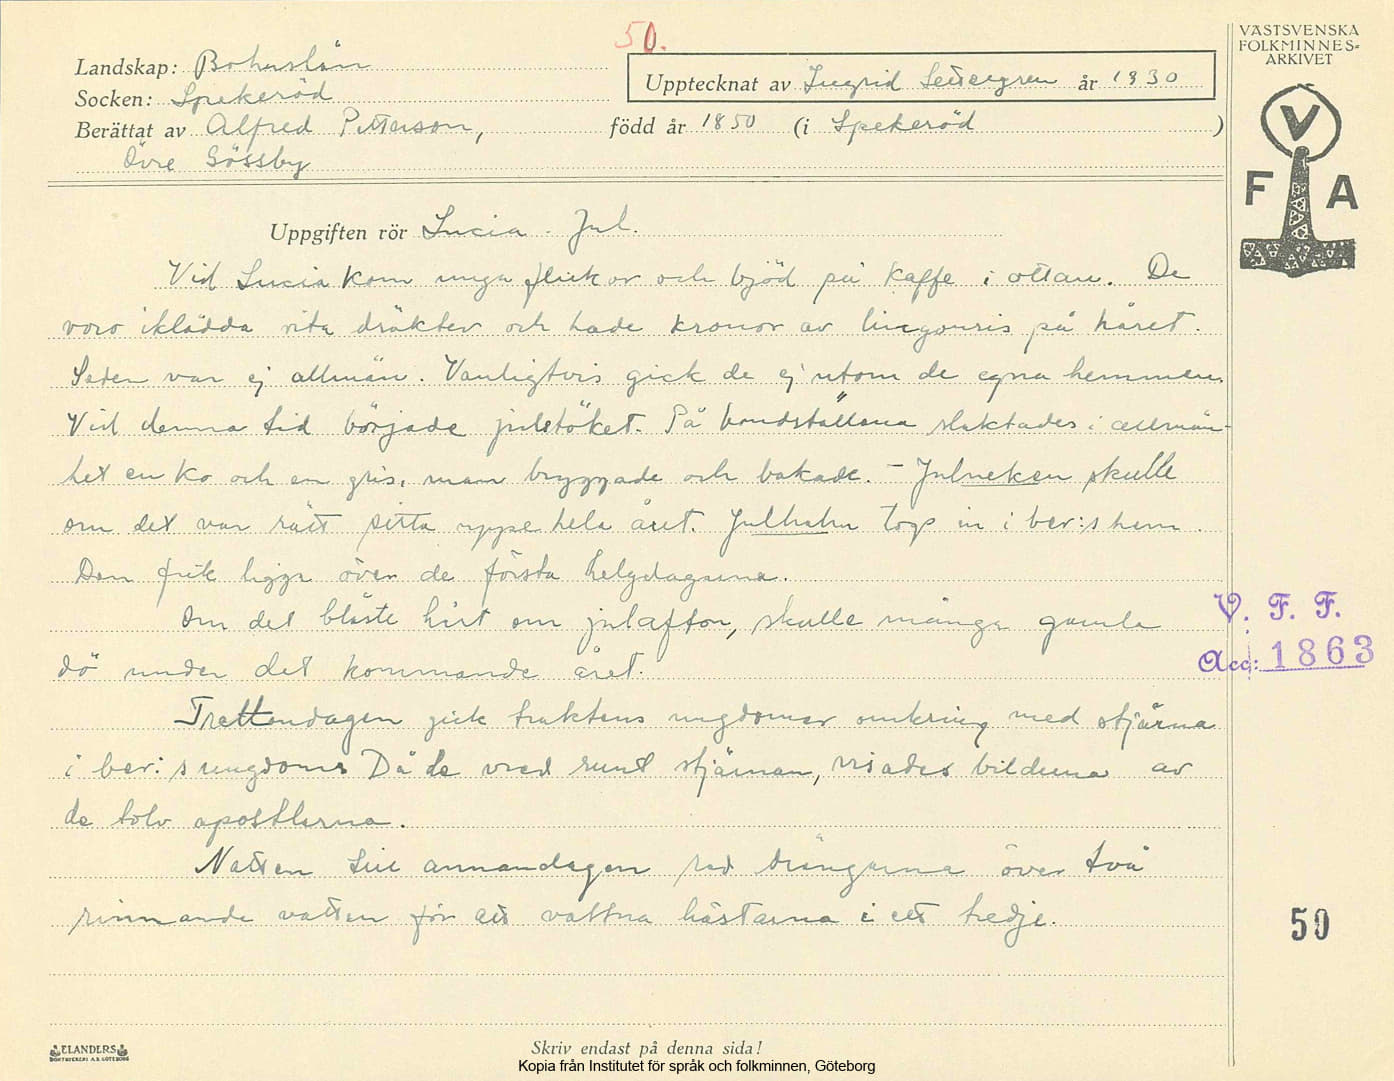 50.
VÄSTSVENSKA
FOLKMINNES-
ARKIVET
Landskap: Bohuslän
Upptecknat av Ingrid Settergren år 1930
Socken: Spekeröd
Berättat av Alfred Petterson, född år 1850 (i Spekeröd )
Övre Gössby
V
F A
Uppgiften rör Lucia - Jul.
Vid Lucia kom unga flickor och bjöd på kaffe i ottan. De
voro iklädda vita dräkter och hade kronor av lingonris på håret.
Seden var ej allmän. Vanligtvis gick de ej utom de egna hemmen.
Vid denna tid började julstöket. På bondställena slaktades i allmän-
het en ko och en gris, man bryggade och bakade. - Julneken skulle
om det var rätt sitta uppe hela året. Julhalm togs in i ber:s hem.
Den fick ligga över de första helgdagarna.
Om det blåste hårt om julafton, skulle många gamla
dö under det kommande året.
V. F. F.
Acc: 1863
Trettondagen gick traktens ungdomar omkring med stjärna
i ber:s ungdom. Då de vred runt stjärnan, visades bilderna av
de tolv apostlarna.
Natten till annandagen red drängarna över två
rinnande vatten för att vattna hästarna i ett tredje.
50
ELANDERS
BOKTRYCKERI A.B. GÖTEBORG
Skriv endast på denna sida!
Kopia från Institutet för språk och folkminnen, Göteborg